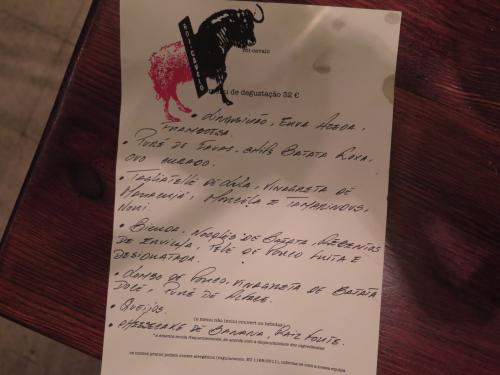 BOI-CAVALO
boi-cavalo
menu de degustação 32 €
• Lingueirão, Erva Azeda,
Framboesa.
• Puré de Favas, chips Batata Roxa,
Ovo curado.
• Tagliatelle de Lula, Vinagreta de
Maracujá, Morcela e Tamarindos,
Nori.
• Bicuda, Nocellos de Batata,
de Ervilha, Pele de Porco frita e
Desidratada.
• Lombo de Porco, Vinagreta de Batata
Doce, Puré de
• Queijos.
(o menu não inclui couvert ou bebidas)
• Cheesecake de Banana, Raiz Forte.
*a ementa muda frequentemente, de acordo com a disponibilidade dos ingredientes
os nossos pratos podem conter alergénios (regulamento EU 1169/2011), informe-se com a nossa equipa